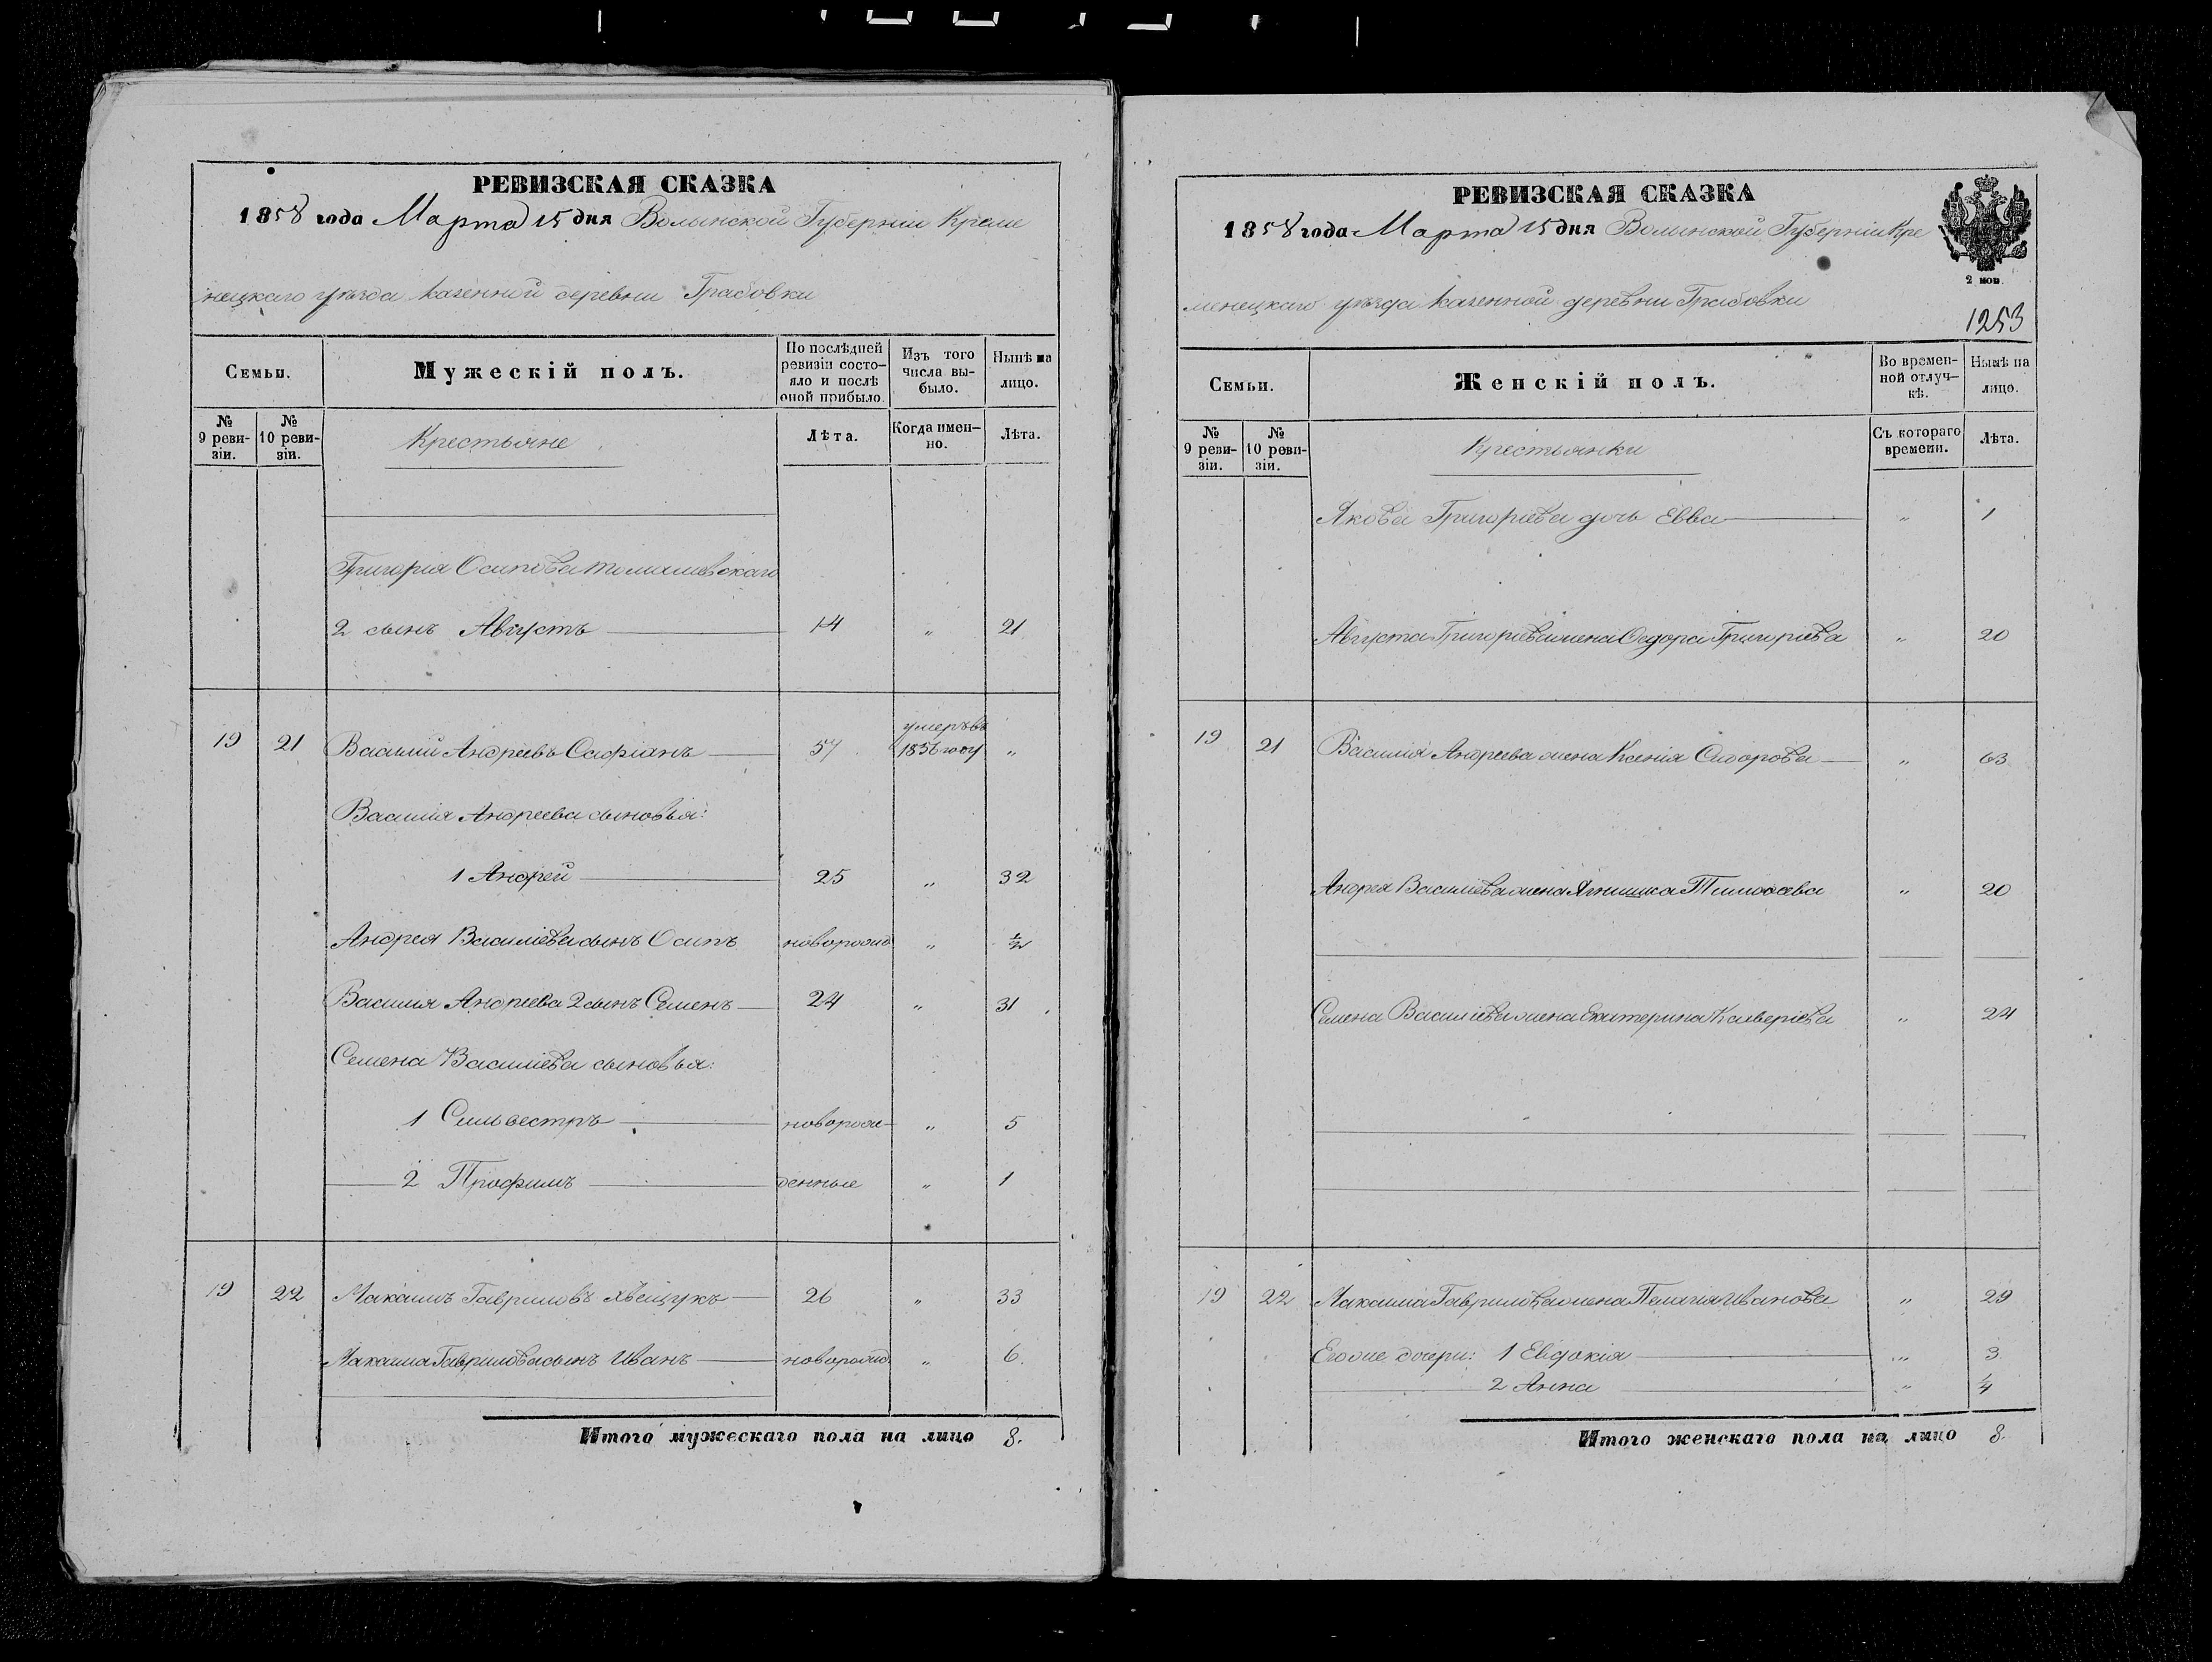 РЕВИЗСКАЯ СКАЗКА
1858 года Марта 15 дня Волынской Губерніи Креме
нецкаго уѣзда казенной деревни Грабовки
Семьи.
Мужескій полъ.
По послѣдней ревизіи состояло и послѣ оной прибыло.
Изъ того числа выбыло.
Нынѣ на лицо.
№ 9 ревизіи.
№ 10 ревизіи.
Крестьяне
Лѣта.
Когда именно.
Лѣта.
Григорія Осипова Томашевскаго
2 сынъ Августъ 14 " 21
19 21 Василій Андреевъ Сафіанъ 57 умеръ въ 1856 году "
Василія Андреева сыновья:
1 Андрей 25 " 32
Андрея Василіева сынъ Осипъ новорожд " ½
Василія Андреева 2 сынъ Семенъ 24 " 31
Семена Василіева сыновья:
1 Сильвестръ новорож- " 5
2 Трофимъ денные " 1
19 22 Максимъ Гавриловъ 26 " 33
Максима Гаврилова сынъ Иванъ новорожд " 6.
Итого мужескаго пола на лицо 8.
РЕВИЗСКАЯ СКАЗКА
1858 года Марта 15 дня Волынской Губерніи Кре
2 коп.
менецкаго уѣзда казенной деревни Грабовки
1253
Семьи.
Женскій полъ.
Во временной отлучкѣ.
Нынѣ на лицо.
№ 9 ревизіи.
№ 10 ревизіи.
Крестьянки
Съ котораго времени.
Лѣта.
Якова Григоріева дочь Евва " 1
Августа Григоріева жена Федора Григоріева " 20
19 21 Василія Андреева жена Ксенія Сидорова " 63
Андрея Василіева жена Ягнишка Тимофеева " 20
Семена Василіева жена Екатерина " 24
19 22 Максима Гаврилова жена Пелагія Иванова " 29
Его же дочери: 1 Евдокія " 3
2 Анна " ¼
Итого женскаго пола на лицо 8.